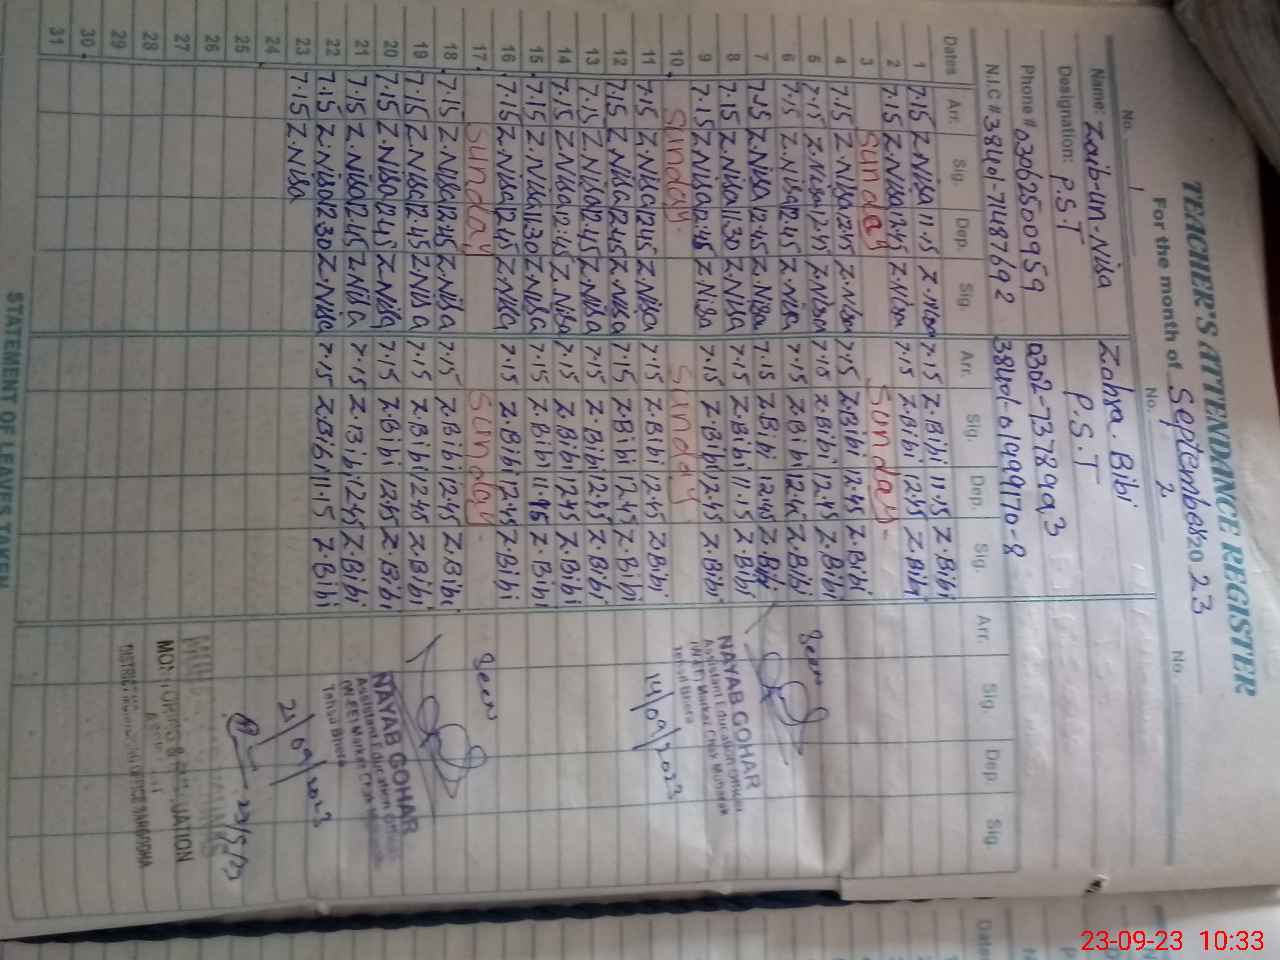 TEACHER'S ATTENDANCE REGISTER
For the month of September 20 23
No. 1 No. 2 No.
Name: Zaib-un-Nisa Zohra. Bibi
Designation: P.S.T P.S.T
Phone # 03062500959 0302-7378903
N.I.C # 38401-7148769 2 38401-0199170-8
Dates Arr. Sig. Dep. Sig. Arr. Sig. Dep. Sig. Arr. Sig. Dep. Sig.
1 7.15 Z.Nisa 11.15 Z.Nisa 7.15 Z.Bibi 11.15 Z.Bibi
2 7.15 Z.Nisa 12.45 Z.Nisa 7.15 Z.Bibi 12.45 Z.Bibi
3 Sunday Sunday
4 7.15 Z.Nisa 12.45 Z.Nisa 7.15 Z.Bibi 12.45 Z.Bibi
5 7.15 Z.Nisa 12.45 Z.Nisa 7.15 Z.Bibi 12.45 Z.Bibi
6 7.15 Z.Nisa 12.45 Z.Nisa 7.15 Z.Bibi 12.45 Z.Bibi
7 7.15 Z.Nisa 12.45 Z.Nisa 7.15 Z.Bibi 12.45 Z.Bibi
8 7.15 Z.Nisa 11.30 Z.Nisa 7.15 Z.Bibi 11.15 Z.Bibi
9 7.15 Z.Nisa 12.45 Z.Nisa 7.15 Z.Bibi 12.45 Z.Bibi
10 Sunday Sunday
11 7.15 Z.Nisa 12.45 Z.Nisa 7.15 Z.Bibi 12.45 Z.Bibi
12 7.15 Z.Nisa 12.45 Z.Nisa 7.15 Z.Bibi 12.45 Z.Bibi
13 7.15 Z.Nisa 12.45 Z.Nisa 7.15 Z.Bibi 12.45 Z.Bibi
14 7.15 Z.Nisa 12.45 Z.Nisa 7.15 Z.Bibi 12.45 Z.Bibi
15 7.15 Z.Nisa 11.30 Z.Nisa 7.15 Z.Bibi Z.Bibi
16 7.15 Z.Nisa 12.45 Z.Nisa 7.15 Z.Bibi 12.45 Z.Bibi
17 Sunday Sunday
18 7.15 Z.Nisa 12.45 Z.Nisa 7.15 Z.Bibi 12.45 Z.Bibi
19 7.15 Z.Nisa 12.45 Z.Nisa 7.15 Z.Bibi 12.45 Z.Bibi
20 7.15 Z.Nisa 12.45 Z.Nisa 7.15 Z.Bibi 12.45 Z.Bibi
21 7.15 Z.Nisa 12.45 Z.Nisa 7.15 Z.Bibi 12.45 Z.Bibi
22 7.15 Z.Nisa 12.30 Z.Nisa 7.15 Z.Bibi 11.15 Z.Bibi
23 7.15 Z.Nisa
24
25
26
27
28
29
30
31
Seen
NAYAB GOHAR
Assistant Education Officer
(W-EE) Markaz Chak Mubarak
Tehsil Bhera
14/09/2023
Seen
NAYAB GOHAR
Assistant Education Officer
(W-EE) Markaz Chak
Tehsil Bhera
21/09/2023
23/9/23
MONITORING & EVALUATION
STATEMENT OF LEAVES TAKEN
Dates
23-09-23 10:33